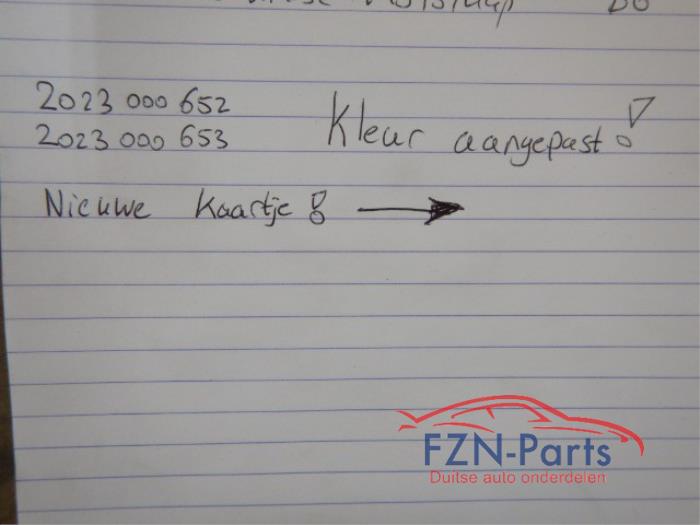 2023 000 652
2023 000 653
Kleur aangepast!
Nieuwe Kaartje!
FZN-Parts
Duitse auto onderdelen